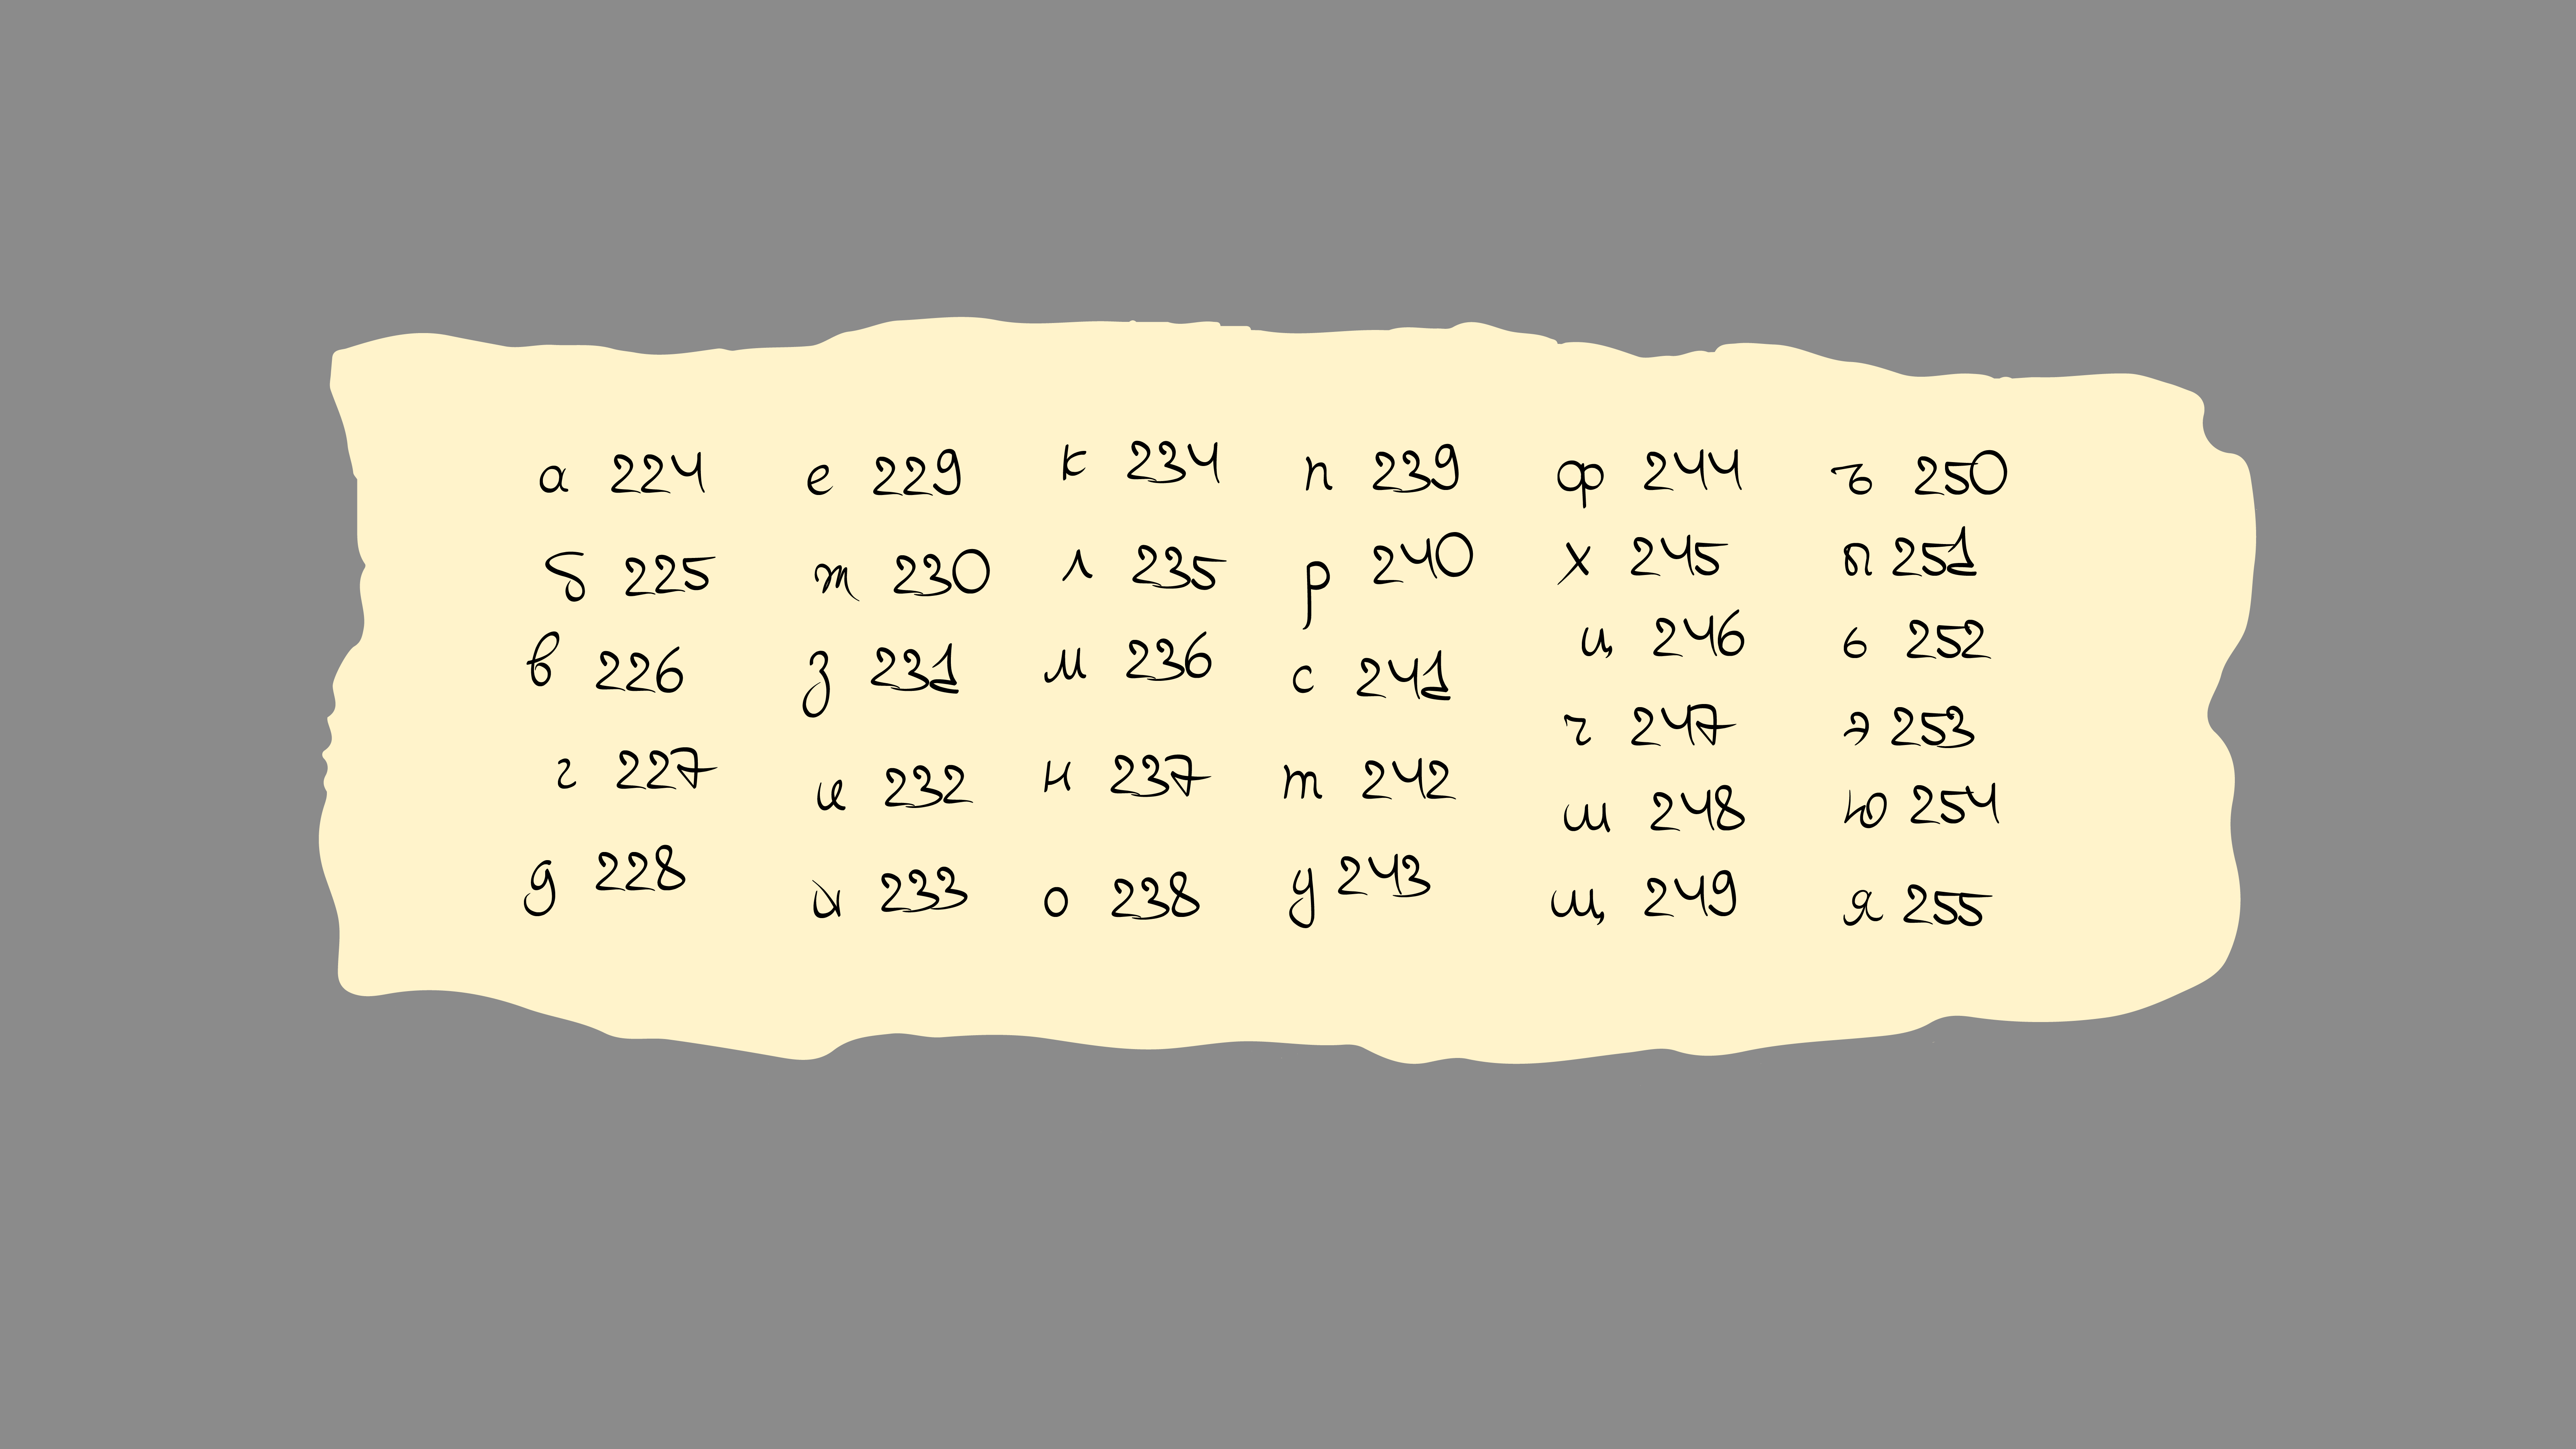 а 224
б 225
в 226
г 227
д 228
е 229
ж 230
з 231
и 232
й 233
к 234
л 235
м 236
н 237
о 238
п 239
р 240
с 241
т 242
у 243
ф 244
х 245
ц 246
ч 247
ш 248
щ 249
ъ 250
ы 251
ь 252
э 253
ю 254
я 255